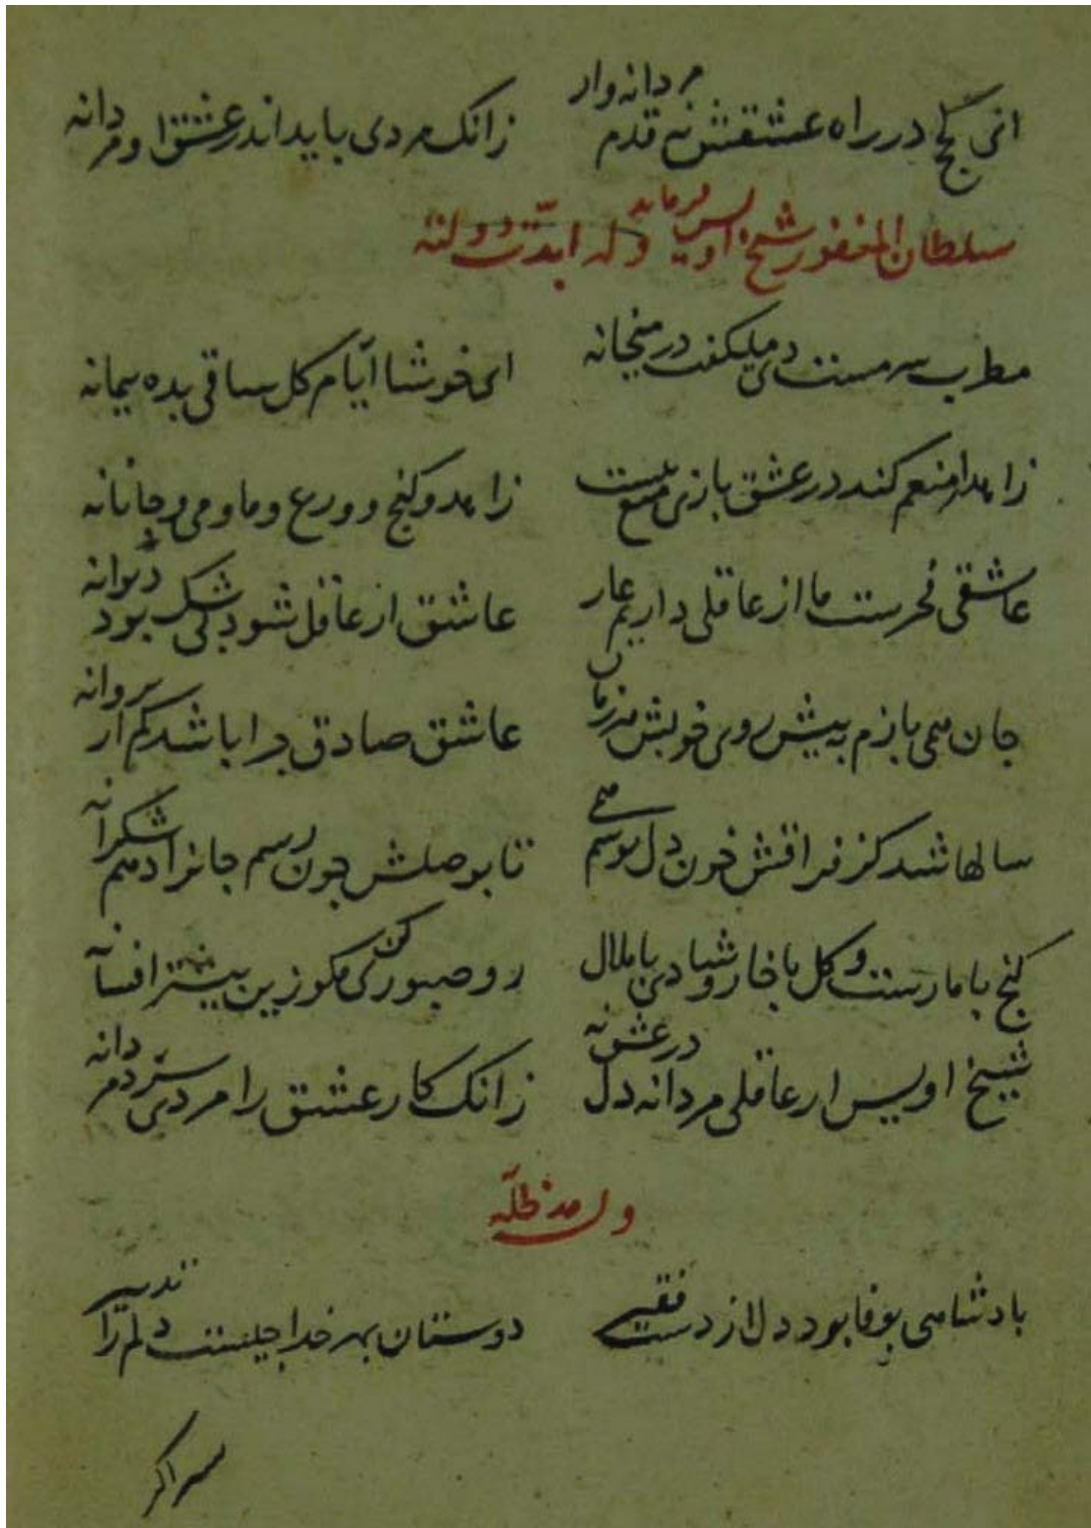 ای کج در راه عشقش نه قدم مردانه وار زانک مردی باید اندر عشق او مردانه
سلطان المغفور شیخ اویس فرماید وله ابدت دولته
مطرب سرمست دی میکفت در میخانه ای خوشا ایام کل ساقی بده پیمانه
زاهد ار منعم کند در عشق بازی منع نیست زاهد و کنج و ورع و ما و می و جانانه
عاشقی فخرست ما از عاقلی داریم عار عاشق ار عاقل شود بی شک بود دیوانه
جان همی بازم به پیش روی خوبش هر زمان عاشق صادق چرا باشد کم از پروانه
سالها شد کز فراقش خون دل نوشم همی تا بوصلش چون رسم جانرا دهم شکرانه
کنج با مارست و کل با خار و شادی با ملال رو صبوری کن مکو زین بیشتر افسانه
شیخ اویس ار عاقلی مردانه دل در عشق نه زانک کار عشق را مردی سزد مردانه
وله مد ظله
بادشاهی بوفا بود دل از دست فقیر دوستان بهر خدا جیست دلم را تدبیر
سر اکر